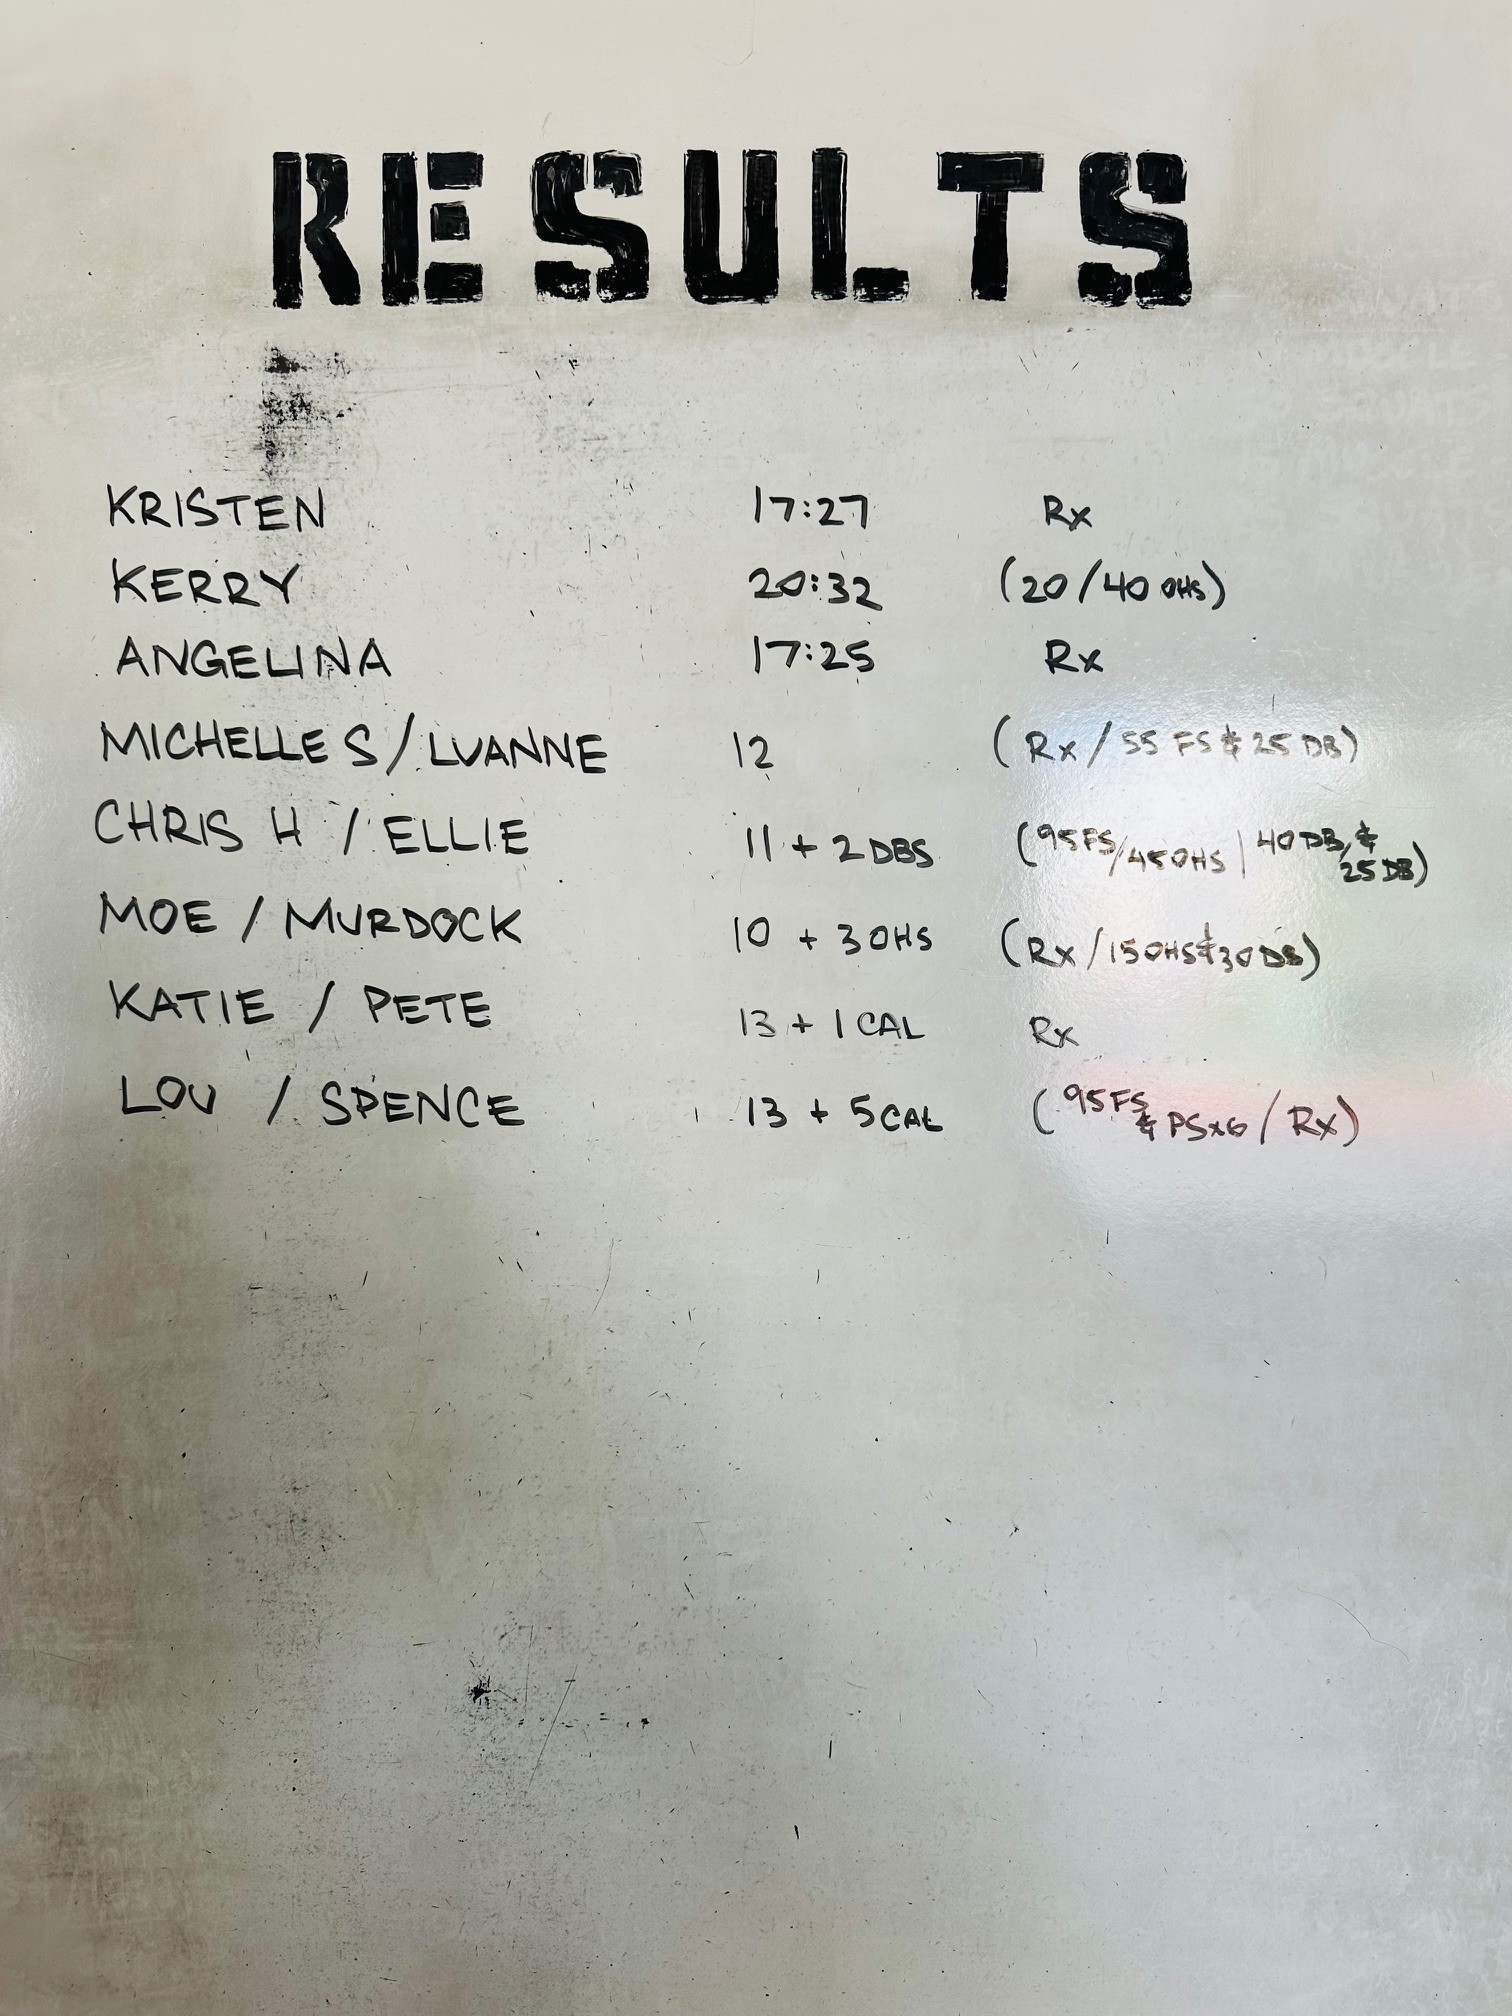 RESULTS
KRISTEN 17:27 Rx
KERRY 20:32 (20/40 OHS)
ANGELINA 17:25 Rx
MICHELLE S / LUANNE 12 (Rx/55 FS & 25 DB)
CHRIS H / ELLIE 11 + 2 DBS (95FS/45OHS | 40DB, & 25DB)
MOE / MURDOCK 10 + 3 OHS (Rx/15OHS & 30DB)
KATIE / PETE 13 + 1 CAL Rx
LOU / SPENCE 13 + 5 CAL (95FS & PSx6 / Rx)